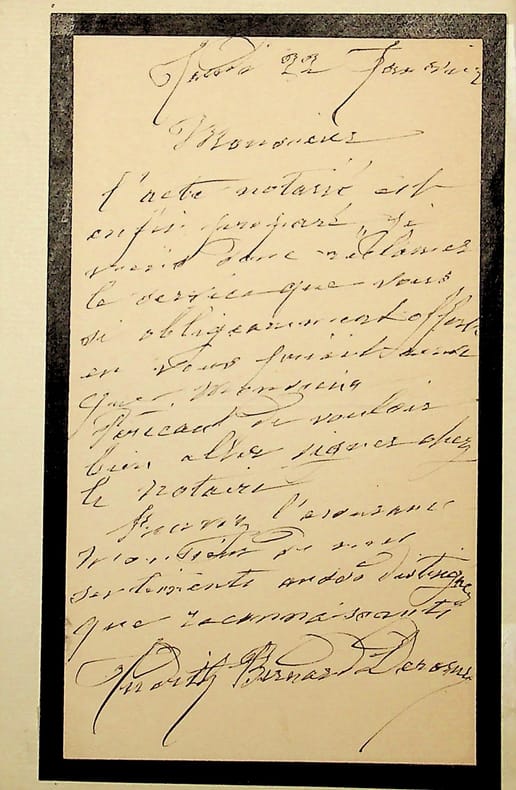 22 Janvier
Monsieur
l'acte notarié est
enfin préparé, je
viens donc réclamer
le service que vous
si obligeamment offert
en vous priant ainsi
que Monsieur
de vouloir
bien aller signer chez
le notaire
Recevez l'assurance
Monsieur de mes
sentiments aussi distingués
que reconnaissants
Judith Bernard Derosne